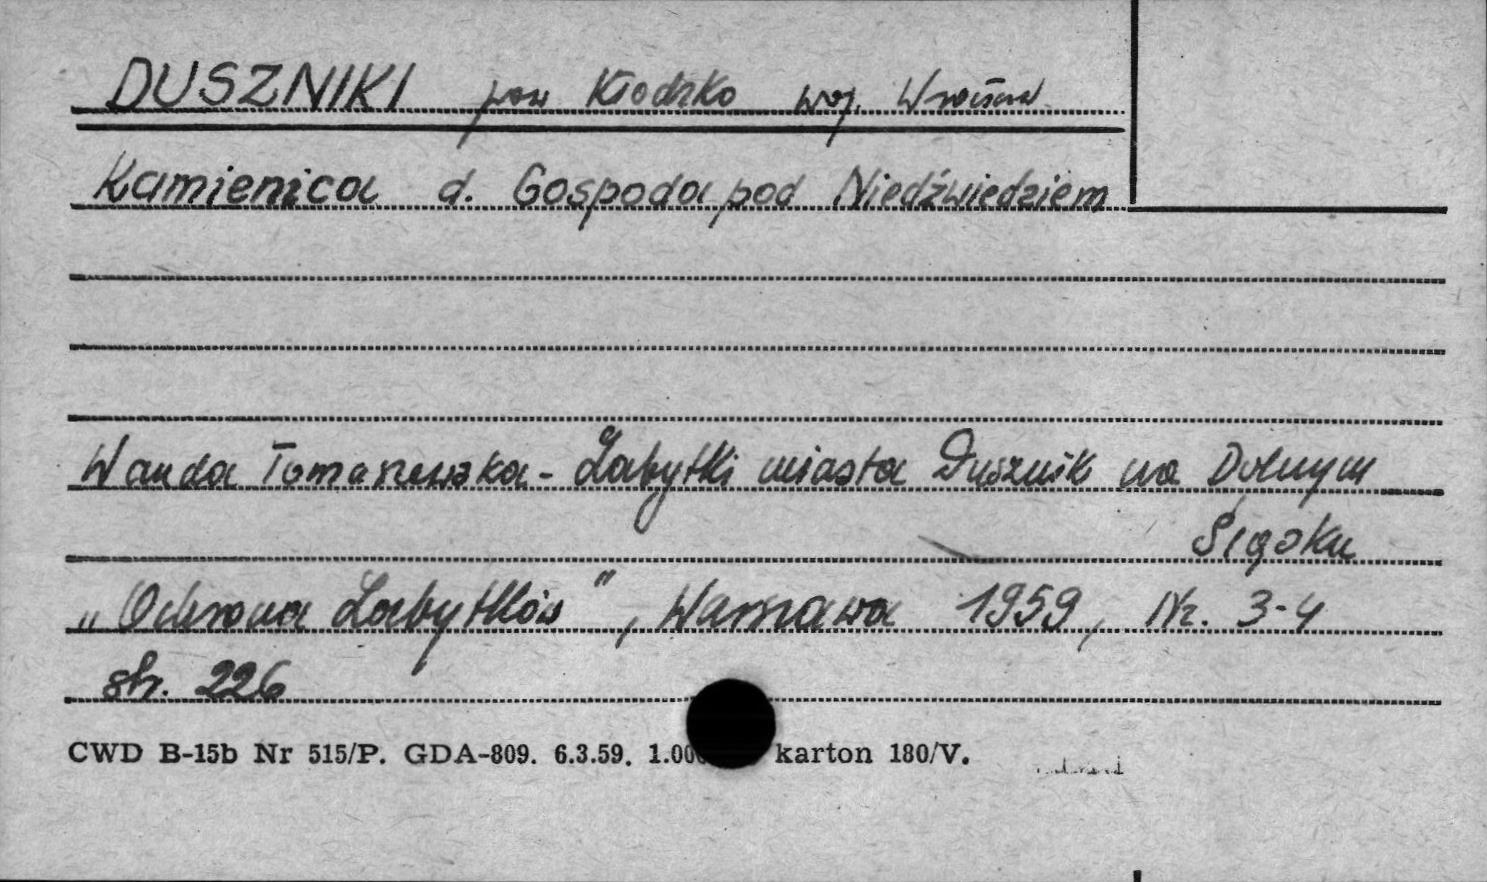 DUSZNIKI pow Kłodzko woj. Wrocław
Kamienica d. Gospoda pod Niedźwiedziem
Wanda Tomaszewska - Zabytki miasta Dusznik na Dolnym
Śląsku
„Ochrona Zabytków”, Warszawa 1959, Nr. 3-4
str. 226
CWD B-15b Nr 515/P. GDA-809. 6.3.59. karton 180/V.